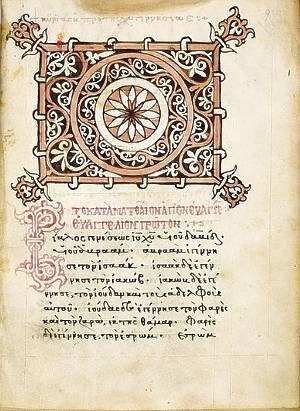 ΤΟ ΚΑΤΑ ΜΑΤΘΑΙΟΝ ΑΓΙΟΝ
ΕΥΑΓΓΕΛΙΟΝ ΠΡΩΤΟΝ
Βίβλος γενέσεως ἰυ χυ υἱοῦ δαυὶδ
υἱοῦ ἀβραάμ. ἀβραὰμ ἐγέν
νησε τὸν ἰσαάκ. ἰσαὰκ δὲ ἐγέν
νησε τὸν ἰακώβ. ἰακὼβ δὲ ἐγέν
νησε τὸν ἰούδαν καὶ τοὺς ἀδελφοὺς
αὐτοῦ. ἰούδας δὲ ἐγέννησε τὸν φαρὲς
καὶ τὸν ζαρὰ ἐκ τῆς θάμαρ. φαρὲς
δὲ ἐγέννησε τὸν ἐσρώμ. ἐσρὼμ